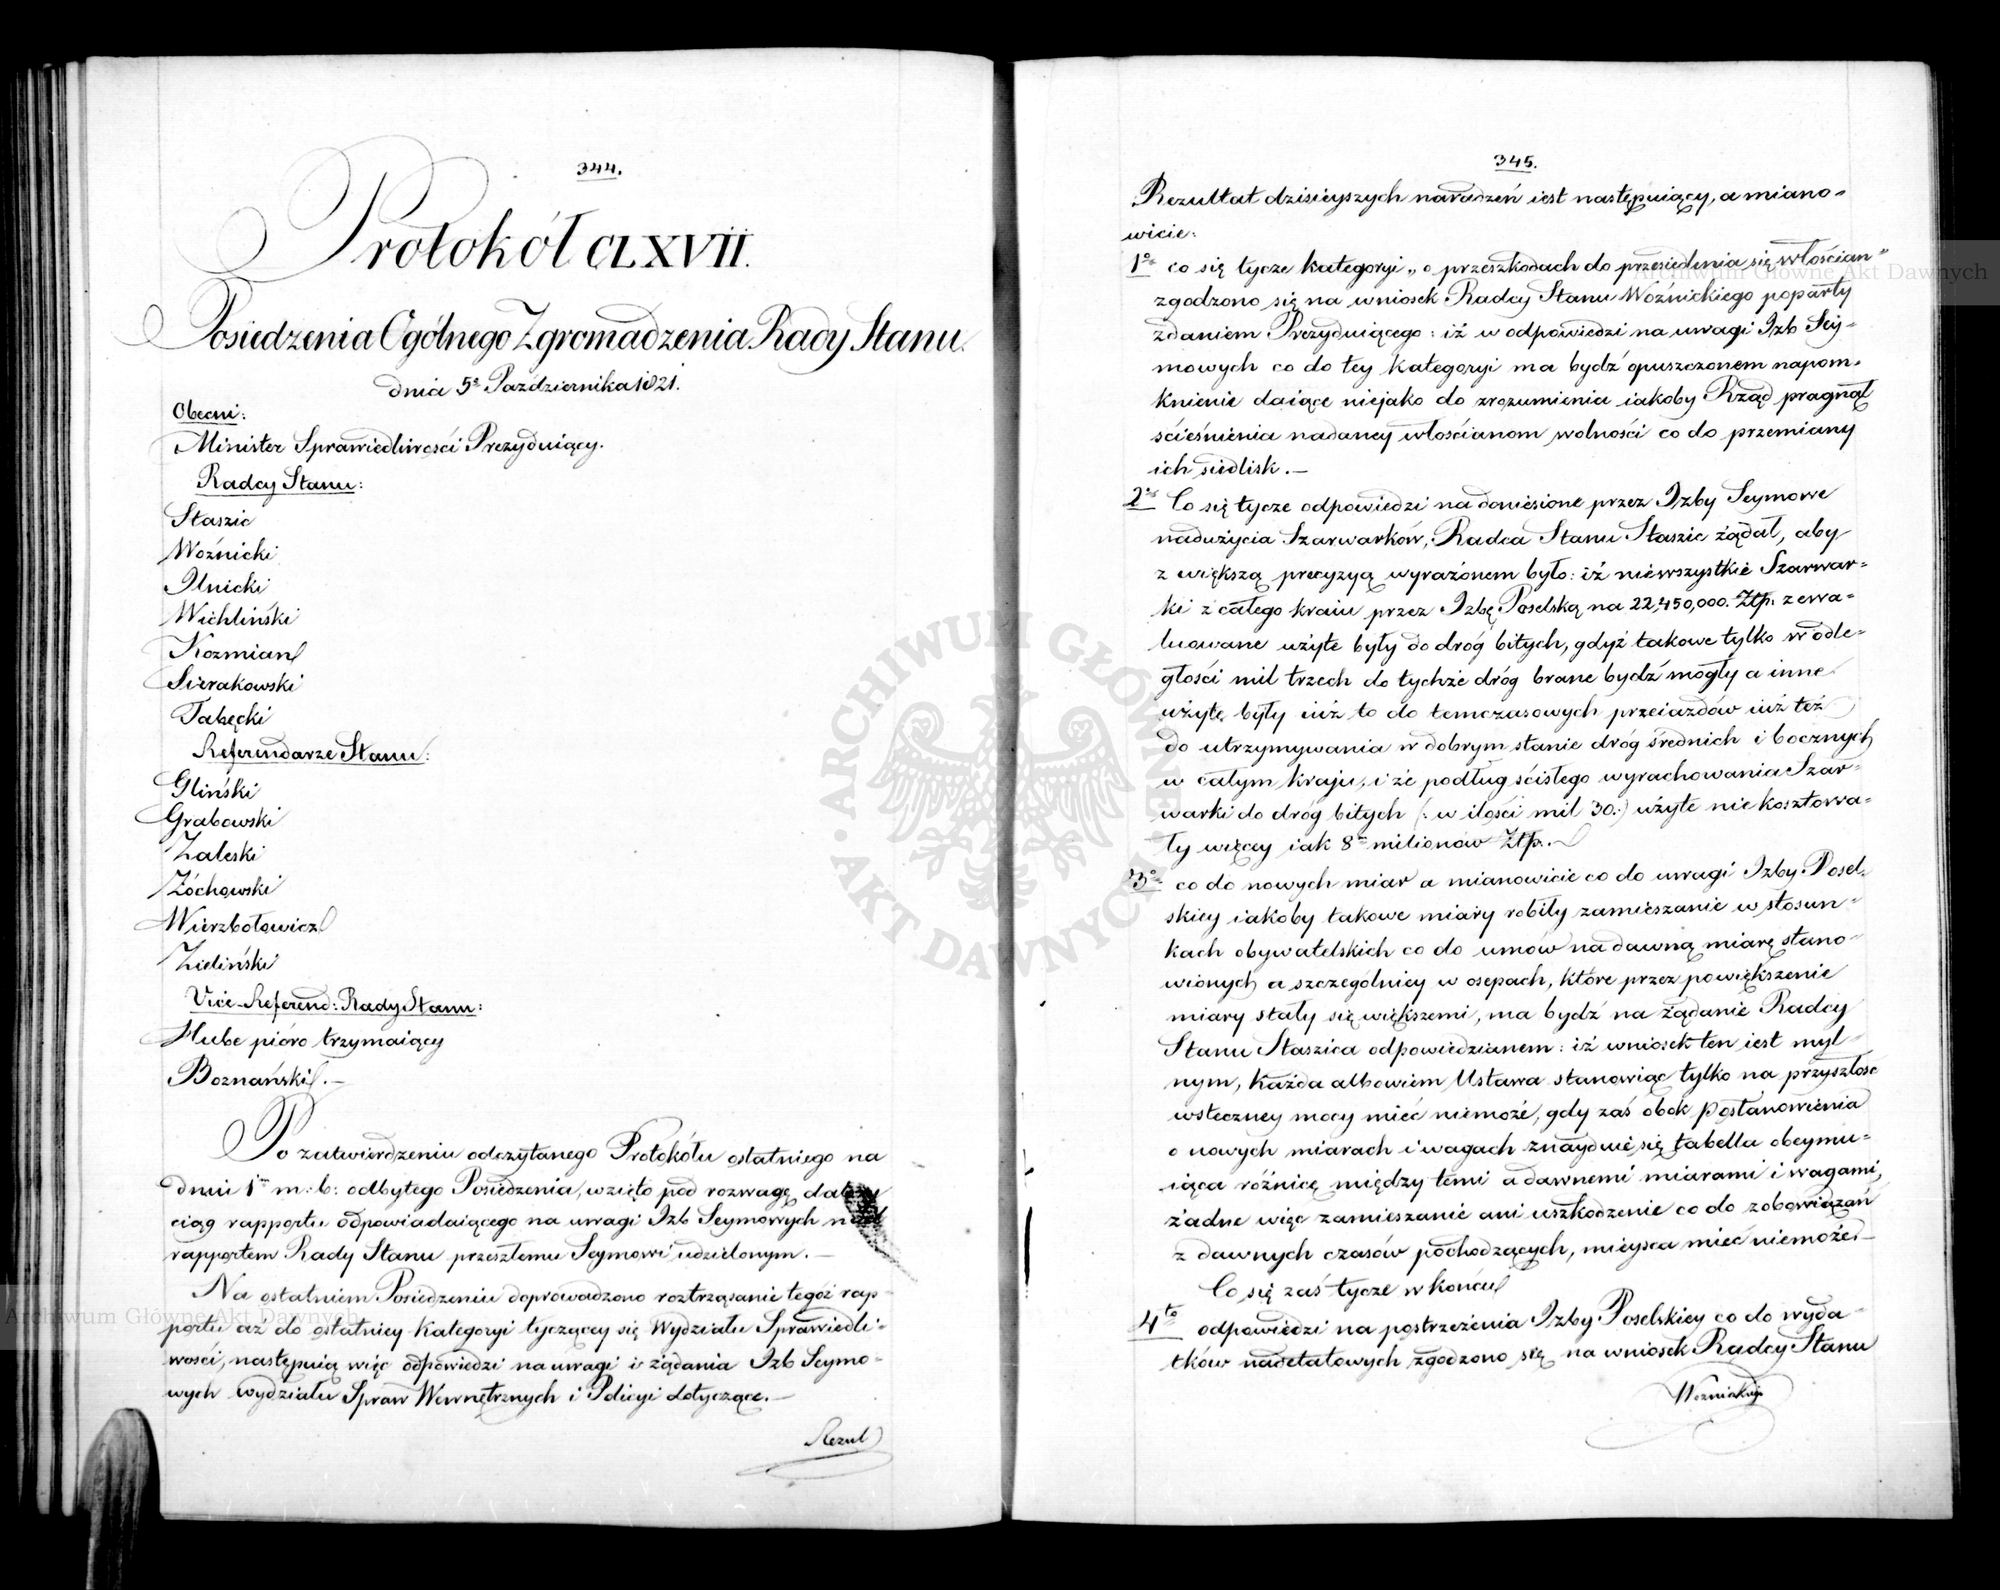 344.
Protokół CLXVII.
Posiedzenia Ogólnego Zgromadzenia Rady Stanu.
dnia 5º Października 1821.
Obecni:
Minister Sprawiedliwości Prezyduiący.
Radcy Stanu:
Staszic
Woźnicki
Ilnicki
Wichliński
Kozmian
Sierakowski
Tabęcki
Referendarze Stanu:
Gliński
Grabowski
Zaleski
Żóchowski
Wierzbołowicz
Zieliński
Vice-Referend: Rady Stanu:
Hube pióro trzymaiący
Boznański. —
Po zatwierdzeniu odczytanego Protokółu ostatniego na
dniu 1m m: b: odbytego Posiedzenia, wzięto pod rozwagę dalszy
ciąg rapportu odpowiadaiącego na uwagi Izb Seymowych nad
rapportem Rady Stanu przeszłemu Seymowi udzielonym. —
Na ostatniem Posiedzeniu doprowadzono roztrząsanie tegóż rap-
portu aż do ostatniey kategoryi tyczącey się Wydziału Sprawiedli-
wości, następuią więc odpowiedzi na uwagi i żądania Izb Seymo-
wych wydziału Spraw Wewnętrznych i Policyi dotyczące. —
Rezul
345.
Rezultat dzisieyszych naradzeń iest następuiący, a miano-
wicie:
1º co się tycze kategoryi „o przeszkodach do przesiedlenia się włościan"
zgodzono się na wniosek Radcy Stanu Woźnickiego poparty
zdaniem Prezyduiącego: iż w odpowiedzi na uwagi Izb Sey-
mowych co do tey kategoryi ma bydź opuszczonem napom-
knienie daiące niejako do zrozumienia iakoby Rząd pragnął
ścieśnienia nadaney włościanom wolności co do przemiany
ich siedlisk. —
2º Co się tycze odpowiedzi na doniesione przez Izby Seymowe
nadużycia Szarwarków, Radca Stanu Staszic żądał, aby
z większą precyzyą wyrażonem było: iż niewszystkie Szarwar-
ki z całego kraiu przez Izbę Poselską na 22,450,000. Złp. zewa-
luowane użyte były do dróg bitych, gdyż takowe tylko w odle-
głości mil trzech do tychże dróg brane bydź mogły a inne
użyte były iuż to do temczasowych przeiazdów iuż też
do utrzymywania w dobrym stanie dróg średnich i bocznych
w całym kraju, i że podług ścisłego wyrachowania Szar-
warki do dróg bitych (: w ilości mil 30 :) użyte nie kosztowa-
ły więcey iak 8m milionów Złp. —
3º co do nowych miar a mianowicie co do uwagi Izby Posel-
skiey iakoby takowe miary robiły zamieszanie w stosun-
kach obywatelskich co do umów na dawną miarę stano-
wionych a szczególniey w osepach, które przez powiększenie
miary stały się większemi, ma bydź na żądanie Radcy
Stanu Staszica odpowiedzianem: iż wniosek ten iest myl-
nym, każda albowiem Ustawa stanowiąc tylko na przyszłość
wsteczney mocy mieć niemoże, gdy zaś obok postanowienia
o nowych miarach i wagach znayduie się tabella obeymu-
iąca różnicę między temi a dawnemi miarami i wagami,
żadne więc zamieszanie ani uszkodzenie co do zobowiązań
z dawnych czasów pochodzących, mieysca mieć niemoże. —
Co się zaś tycze w końcu
4to odpowiedzi na postrzeżenia Izby Poselskiey co do wyda-
tków nadetatowych zgodzono się na wniosek Radcy Stanu
Woźnickiego
Archiwum Główne Akt Dawnych
Archiwum Główne Akt Dawnych
ARCHIWUM GŁÓWNE AKT DAWNYCH